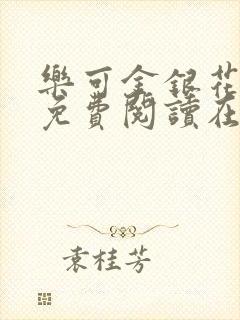 樂可金銀花
免費閱讀在
袁桂芳